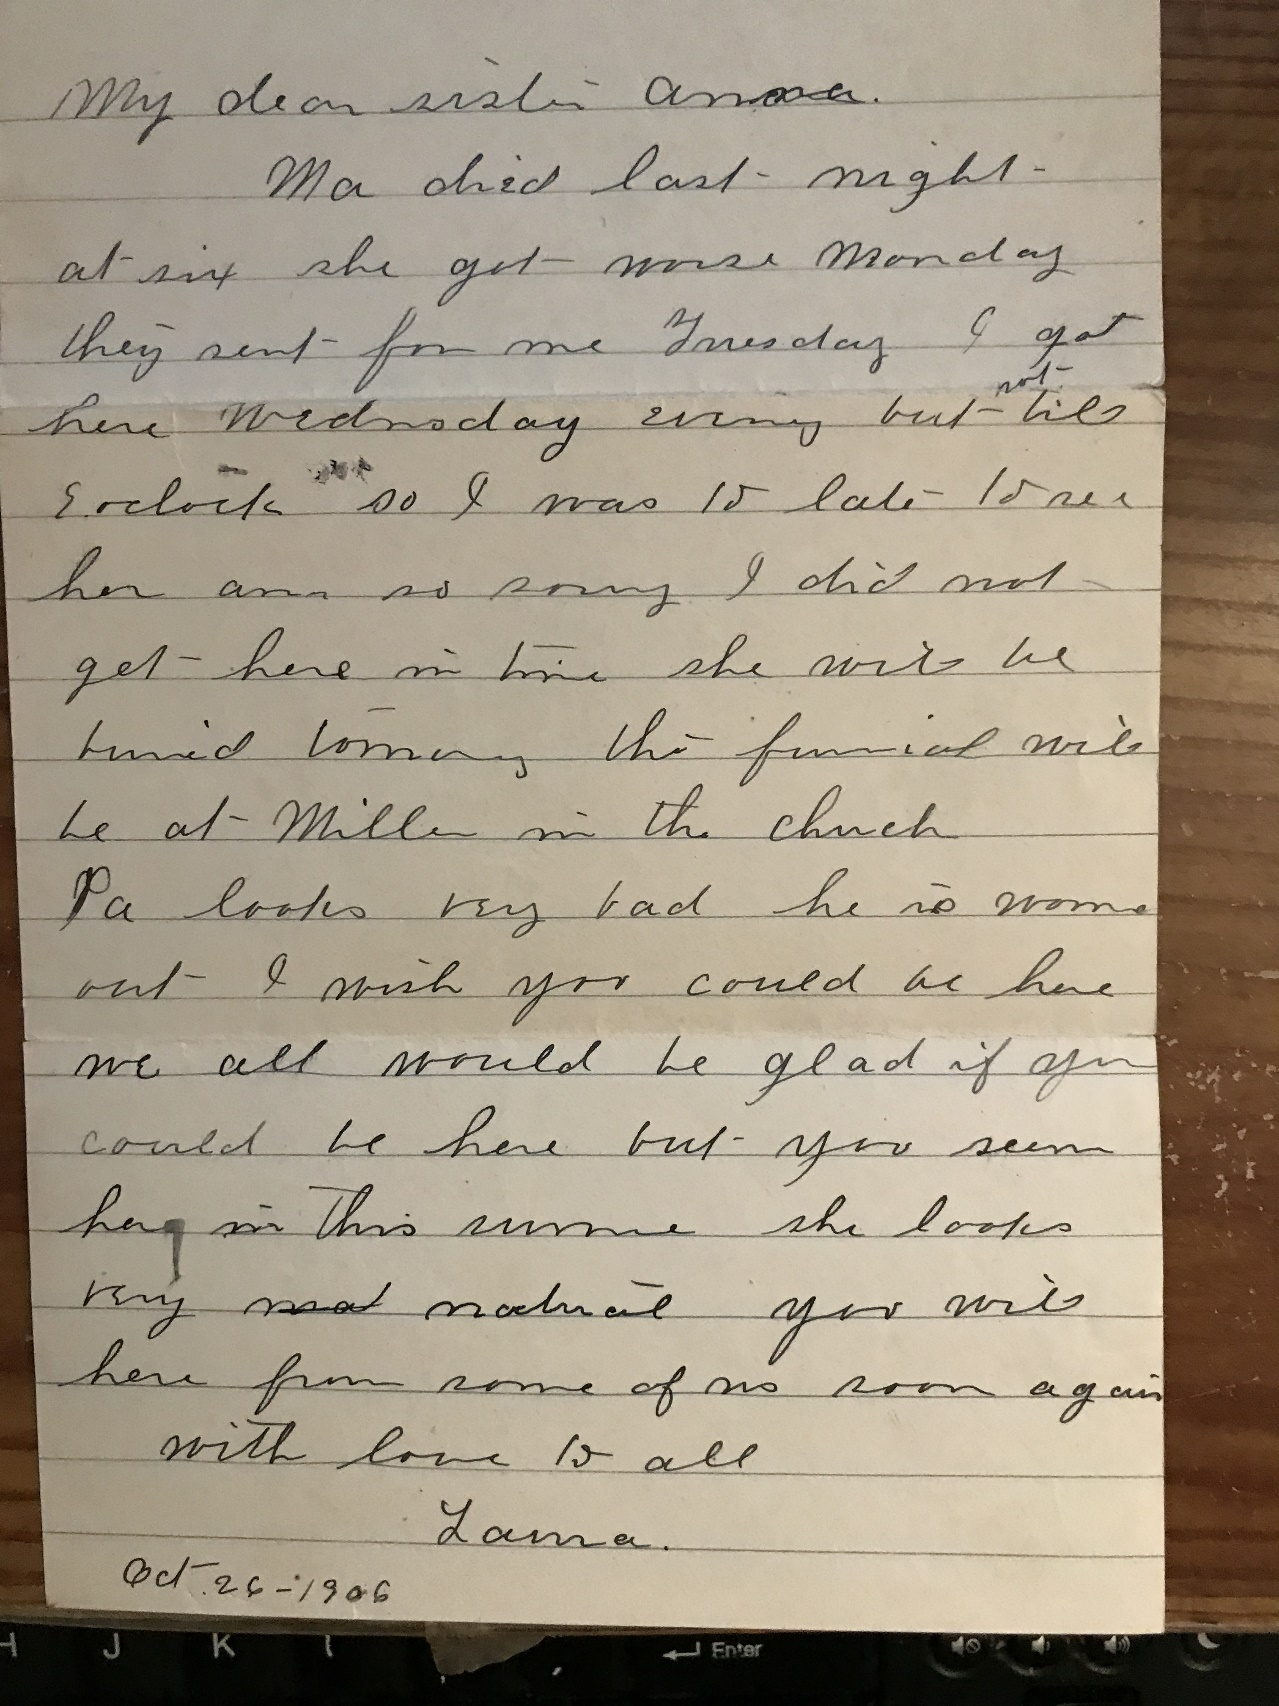 My dear sister Anna.
Ma died last night
at six she got worse Monday
they sent for me Tuesday I got
not
here Wednsday evening but till
8 oclock so I was to late to see
her am so sorry I did not
get here in time she will be
buried tomorry the funrial will
be at Miller in the chuch
Pa looks very bad he is worne
out I wish you could be here
we all would be glad if you
could be here but you seen
her in this summe she looks
very natural you will
here from some of us soon again
with love to all
Laura.
Oct. 26-1906
H J K l Enter